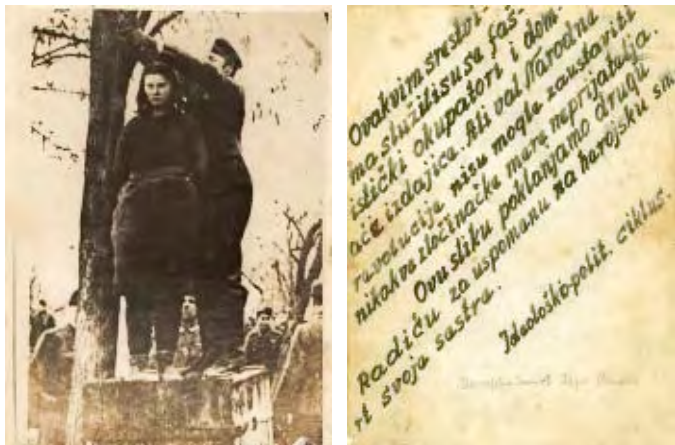 Ovakvim srestvi-
ma služilisu se faš-
istički okupatori i dom-
aće izdajice. Ali val Narodne
revolucije nisu mogle zaustaviti
nikakve zločinačke mere neprijatelja.
Ovu sliku poklanjamo drugu
Radiću za uspomenu na herojsku sm-
rt svoje sestre.
Ideološko-polit. ciklus.